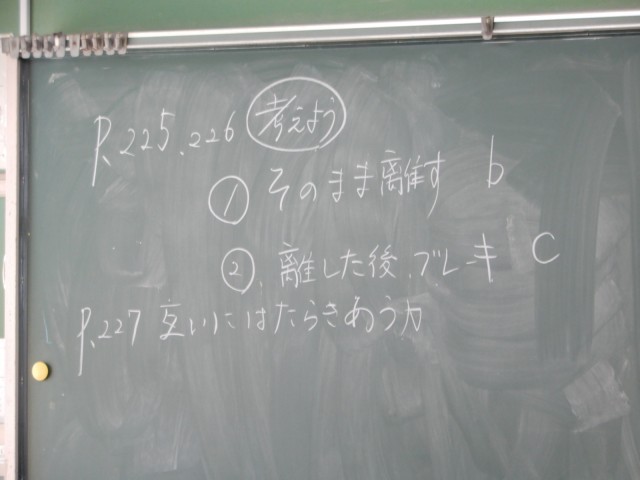 P.225.226 考えよう
① そのまま離す b
②.離した後.ブレーキ C
P.227 互いにはたらきあう力